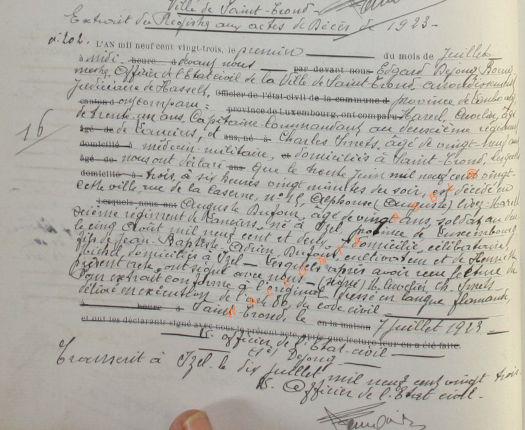 Ville de Saint-Trond
Extrait du Registre aux actes de Décès de 1923
n° 202. L'AN mil neuf cent vingt-trois, le premier du mois de Juillet
à midi heure à devant nous par devant nous Edgard Dejong, Bourg-
mestre, Officier de l'Etat civil de la Ville de Saint-Trond, arrondissement
judiciaire de Hasselt, officier de l'état-civil de la commune d province de Limbourg
canton d ont comparu: province de Luxembourg, ont comparu Marcel
de trente-un ans, Capitaine Commandant au deuxième régiment
âgé de de Lanciers, et ans, né à Charles Smets, âgé de vingt-
domicilié à médecin militaire, et domiciliés à Saint-Trond, lesquels
âgé de nous ont déclaré ans que le trente Juin mil neuf cent vingt-
domicilié à trois, à six heures vingt minutes du soir, est décédé en
cette ville, rue de la Caserne, n° 15, Alphonse
Lesquels nous ont Auguste Dufour, âgé de vingt ans, soldat au
régiment de Lanciers, né à Izel, province de Luxembourg
le cinq Août mil neuf cent et deux, y domicilié, célibataire,
fils de Jean-Baptiste Dufour, cultivateur et de
domiciliés à Izel. après avoir reçu lecture du
présent acte, ont signé avec nous (signé) Ch. Smets
Pour extrait conforme à l'original dressé en langue flamande
délivré en exécution de l'art 80 du code civil
à heure à Saint-Trond, le en la maison 7 juillet 1923
et ont les déclarants signé avec nous le présent acte, après que lecture leur en a été faite.
L'officier de l'Etat-civil
Dejong
Transcrit à Izel le dix juillet mil neuf cent vingt trois.
L'Officier de l'Etat civil.
16